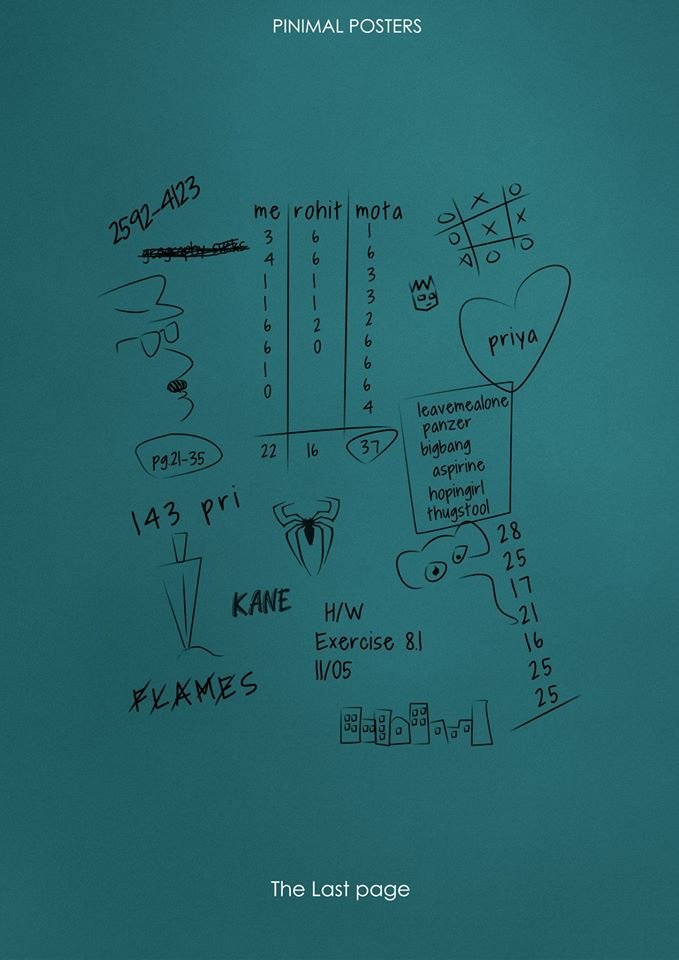 PINIMAL POSTERS
2592-4123
geography sucks
me rohit mota
3 6 1
4 6 6
1 1 3
1 1 3
6 2 2
6 0 6
1 6
0 6
4
22 16 37
O X O
O X X
A O O
priya
pg.21-35
leavemealone
panzer
bigbang
aspirine
hopingirl
thugstool
143 pri
28
25
17
21
16
25
25
KANE
H/W
Exercise 8.1
11/05
FLAMES
The Last page